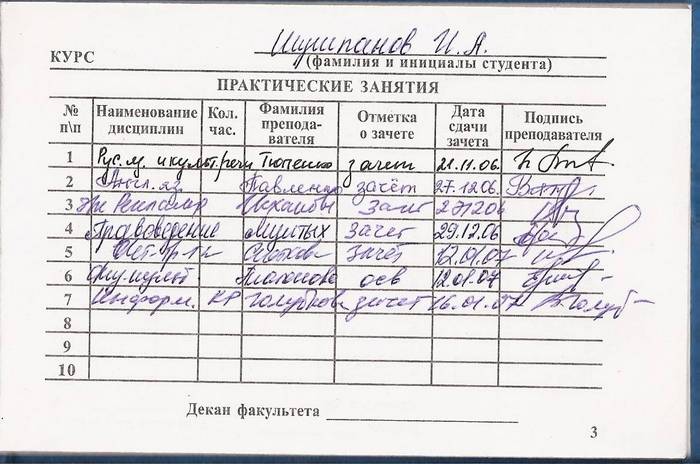 Шушпанов И. А.
КУРС (фамилия и инициалы студента)
ПРАКТИЧЕСКИЕ ЗАНЯТИЯ
№ п\п Наименование дисциплин Кол. час. Фамилия препода- вателя Отметка о зачете Дата сдачи зачета Подпись преподавателя
1 Рус. яз. и культ. речи зачет 21.11.06.
2 Англ. яз. Павленко зачёт 27.12.06.
3 зачет 271206
4 Правоведение зачет 29.12.06
5 зачёт 12.01.07
6 Физ. культ. осв 12.01.07
7 Информ. КР Голубкова зачет 16.01.07 Голуб
8
9
10
Декан факультета
3